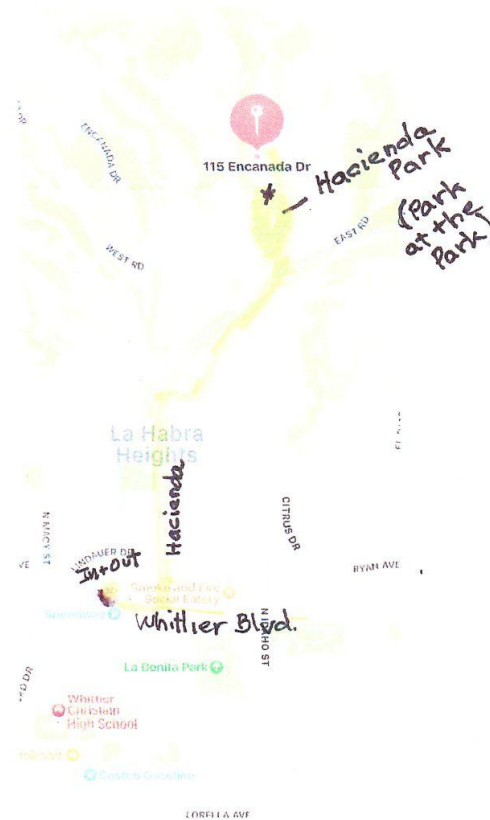 ENCANADA DR
115 Encanada Dr
Hacienda
Park
(Park
at the
Park)
WEST RD
EAST RD
La Habra
Heights
Hacienda
N MACY ST
CITRUS DR
LINDAUER DR
In+Out
RYAN AVE
Smoke and Fire
Social Eatery
Whittier Blvd.
N IDAHO ST
La Bonita Park
Whittier
Christian
High School
Costco Gasoline
LORELLA AVE